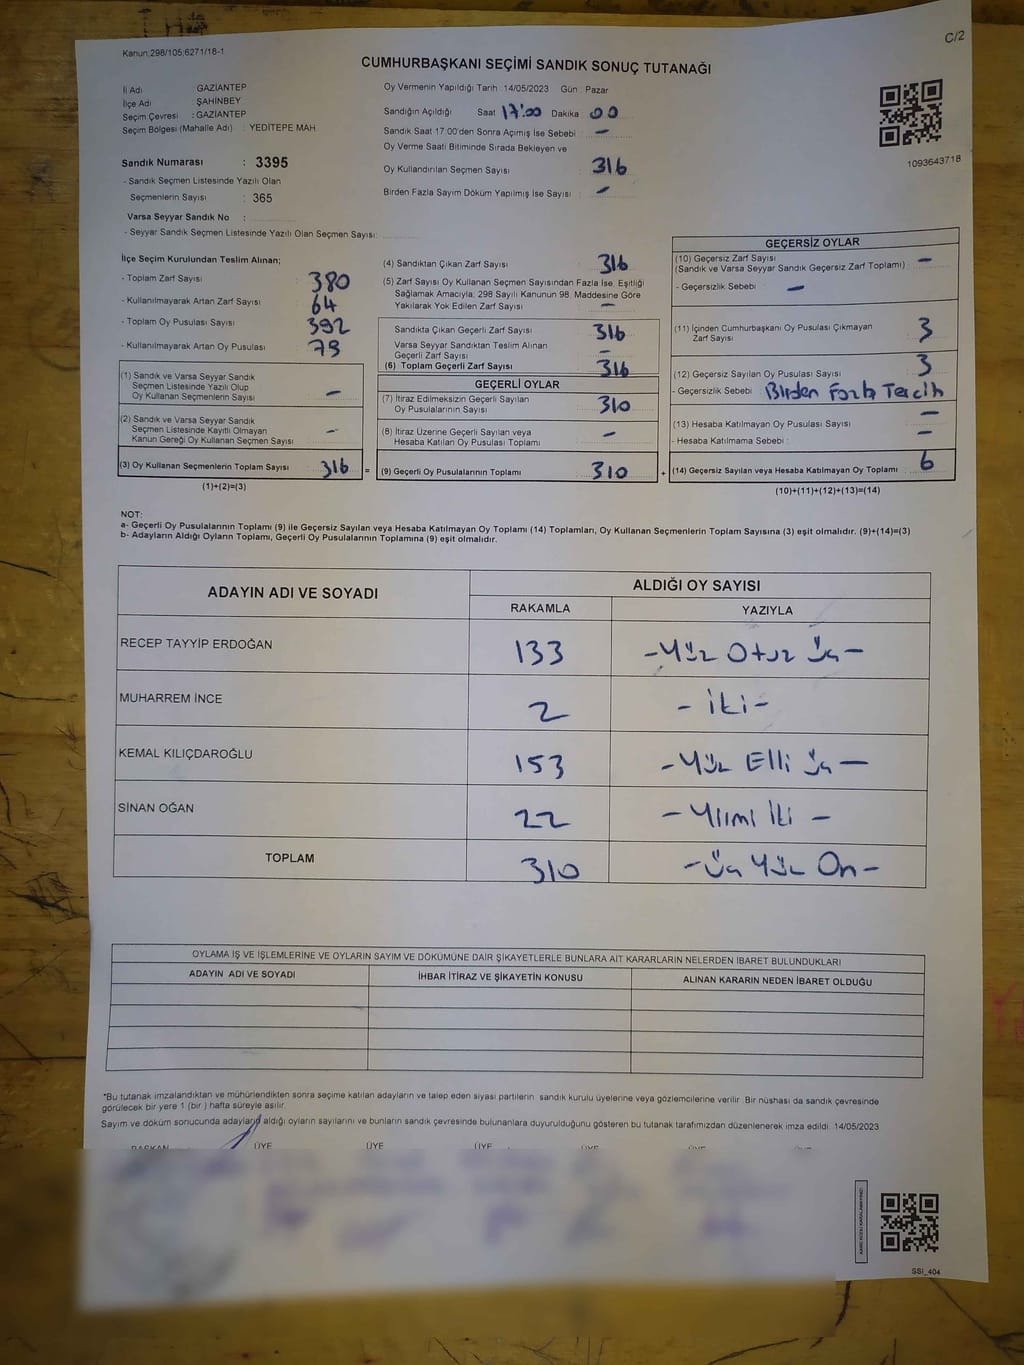 C/2
Kanun:298/105;6271/18-1
CUMHURBAŞKANI SEÇİMİ SANDIK SONUÇ TUTANAĞI
İl Adı GAZİANTEP
İlçe Adı ŞAHİNBEY
Seçim Çevresi : GAZİANTEP
Seçim Bölgesi (Mahalle Adı) : YEDİTEPE MAH
Sandık Numarası : 3395
- Sandık Seçmen Listesinde Yazılı Olan
Seçmenlerin Sayısı : 365
Varsa Seyyar Sandık No :
- Seyyar Sandık Seçmen Listesinde Yazılı Olan Seçmen Sayısı:
Oy Vermenin Yapıldığı Tarih : 14/05/2023 Gün : Pazar
Sandığın Açıldığı Saat 17:00 Dakika 00
Sandık Saat 17:00'den Sonra Açımış İse Sebebi : —
Oy Verme Saati Bitiminde Sırada Bekleyen ve
Oy Kullandırılan Seçmen Sayısı : 316
Birden Fazla Sayım Döküm Yapılmış İse Sayısı : —
1093643718
İlçe Seçim Kurulundan Teslim Alınan;
- Toplam Zarf Sayısı : 380
- Kullanılmayarak Artan Zarf Sayısı : 64
- Toplam Oy Pusulası Sayısı : 392
- Kullanılmayarak Artan Oy Pusulası : 79
(1) Sandık ve Varsa Seyyar Sandık
Seçmen Listesinde Yazılı Olup
Oy Kullanan Seçmenlerin Sayısı : —
(2) Sandık ve Varsa Seyyar Sandık
Seçmen Listesinde Kayıtlı Olmayan
Kanun Gereği Oy Kullanan Seçmen Sayısı : —
(3) Oy Kullanan Seçmenlerin Toplam Sayısı : 316 =
(1)+(2)=(3)
(4) Sandıktan Çıkan Zarf Sayısı : 316
(5) Zarf Sayısı Oy Kullanan Seçmen Sayısından Fazla İse, Eşitliği
Sağlamak Amacıyla; 298 Sayılı Kanunun 98. Maddesine Göre
Yakılarak Yok Edilen Zarf Sayısı : —
Sandıkta Çıkan Geçerli Zarf Sayısı : 316
Varsa Seyyar Sandıktan Teslim Alınan
Geçerli Zarf Sayısı : —
(6) Toplam Geçerli Zarf Sayısı : 316
GEÇERLİ OYLAR
(7) İtiraz Edilmeksizin Geçerli Sayılan
Oy Pusulalarının Sayısı : 310
(8) İtiraz Üzerine Geçerli Sayılan veya
Hesaba Katılan Oy Pusulası Toplamı : —
(9) Geçerli Oy Pusulalarının Toplamı : 310 +
GEÇERSİZ OYLAR
(10) Geçersiz Zarf Sayısı
(Sandık ve Varsa Seyyar Sandık Geçersiz Zarf Toplamı) : —
- Geçersizlik Sebebi : —
(11) İçinden Cumhurbaşkanı Oy Pusulası Çıkmayan
Zarf Sayısı : 3
(12) Geçersiz Sayılan Oy Pusulası Sayısı : 3
- Geçersizlik Sebebi : Birden Fazla Tercih
(13) Hesaba Katılmayan Oy Pusulası Sayısı : —
- Hesaba Katılmama Sebebi : —
(14) Geçersiz Sayılan veya Hesaba Katılmayan Oy Toplamı : 6
(10)+(11)+(12)+(13)=(14)
NOT:
a- Geçerli Oy Pusulalarının Toplamı (9) ile Geçersiz Sayılan veya Hesaba Katılmayan Oy Toplamı (14) Toplamları, Oy Kullanan Seçmenlerin Toplam Sayısına (3) eşit olmalıdır. (9)+(14)=(3)
b- Adayların Aldığı Oyların Toplamı, Geçerli Oy Pusulalarının Toplamına (9) eşit olmalıdır.
ADAYIN ADI VE SOYADI ALDIĞI OY SAYISI
RAKAMLA YAZIYLA
RECEP TAYYİP ERDOĞAN 133 -Yüz Otuz Üç-
MUHARREM İNCE 2 - İki-
KEMAL KILIÇDAROĞLU 153 -Yüz Elli Üç-
SİNAN OĞAN 22 - Yirmi İki -
TOPLAM 310 -Üç Yüz On-
OYLAMA İŞ VE İŞLEMLERİNE VE OYLARIN SAYIM VE DÖKÜMÜNE DAİR ŞİKAYETLERLE BUNLARA AİT KARARLARIN NELERDEN İBARET BULUNDUKLARI
ADAYIN ADI VE SOYADI İHBAR İTİRAZ VE ŞİKAYETİN KONUSU ALINAN KARARIN NEDEN İBARET OLDUĞU
*Bu tutanak imzalandıktan ve mühürlendikten sonra seçime katılan adayların ve talep eden siyasi partilerin sandık kurulu üyelerine veya gözlemcilerine verilir. Bir nüshası da sandık çevresinde
görülecek bir yere 1 (bir ) hafta süreyle asılır.
Sayım ve döküm sonucunda adayların aldığı oyların sayılarını ve bunların sandık çevresinde bulunanlara duyurulduğunu gösteren bu tutanak tarafımızdan düzenlenerek imza edildi. 14/05/2023
BAŞKAN ÜYE ÜYE ÜYE ÜYE ÜYE ÜYE
SSI_404